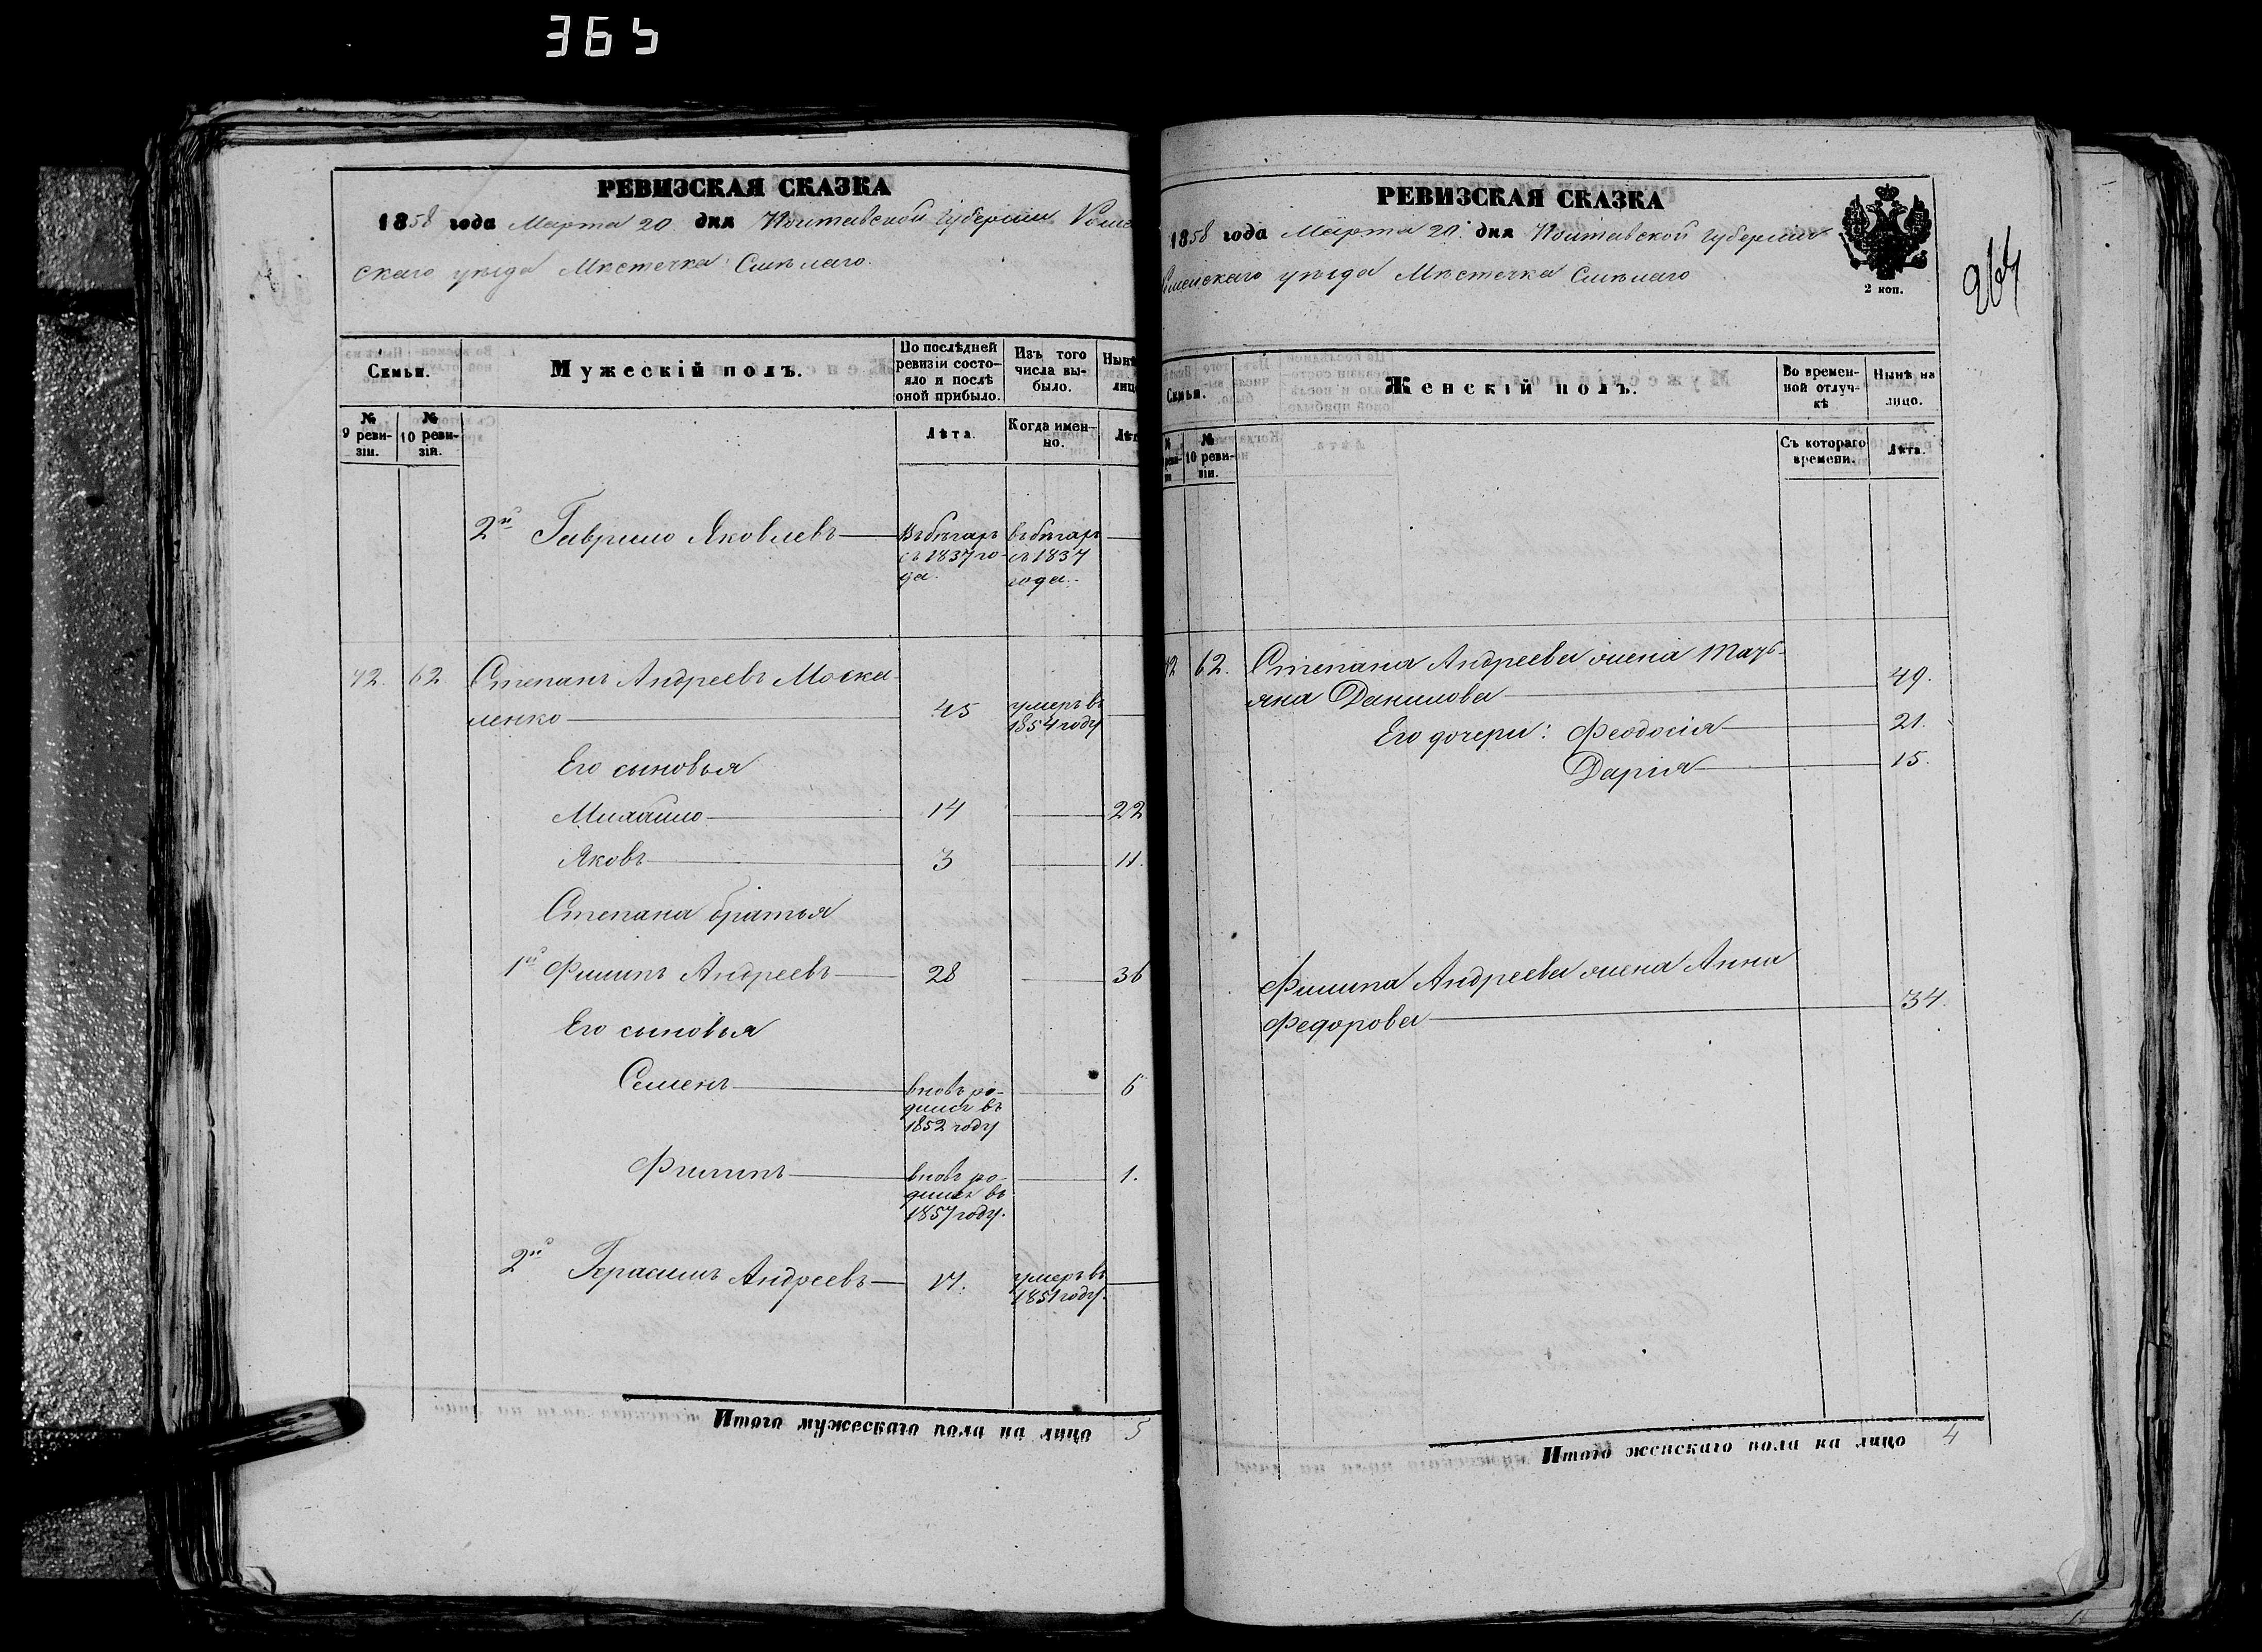 365
РЕВИЗСКАЯ СКАЗКА
1858 года Марта 20 дня Полтавской Губернии Роменскаго уѣзда Мѣстечка Смѣлаго.
Семьи.
Мужескій полъ.
По послѣдней ревизіи состояло и послѣ оной прибыло.
Изъ того числа выбыло.
Нынѣ
лиц
№ 9 ревизіи.
№ 10 ревизіи.
Лѣта.
Когда именно.
Лѣт
2й Гаврило Яковлевъ
Въ бѣгахъ съ 1837 года.
въ бѣгахъ съ 1837 года.
42. 62 Степанъ Андреевъ Моска-
ленко 45 умеръ въ 1854 году
Его сыновья
Михайло 14 22
Яковъ 3 11.
Степана братья
1й Филипъ Андреевъ 28 36
Его сыновья
Семенъ вновь родился въ 1852 году 6
Филипъ вновь родился въ 1857 году. 1.
2й Герасимъ Андреевъ 17. умеръ въ 1851 году.
Итого мужескаго пола на лицо 5
РЕВИЗСКАЯ СКАЗКА
1858 года Марта 20 дня Полтавской Губерніи
Роменскаго уѣзда Мѣстечка Смѣлаго
2 коп.
264
Семьи.
Женскій полъ.
Во временной отлучкѣ
Нынѣ на лицо.
№ 10 ревизіи.
Съ котораго времени.
Лѣта.
42 62. Степана Андреева жена Марь-
яна Данилова 49.
Его дочери: Феодосія 21.
Дарія 15.
Филипа Андреева жена Анна
Федорова 34.
Итого женскаго пола на лицо 4